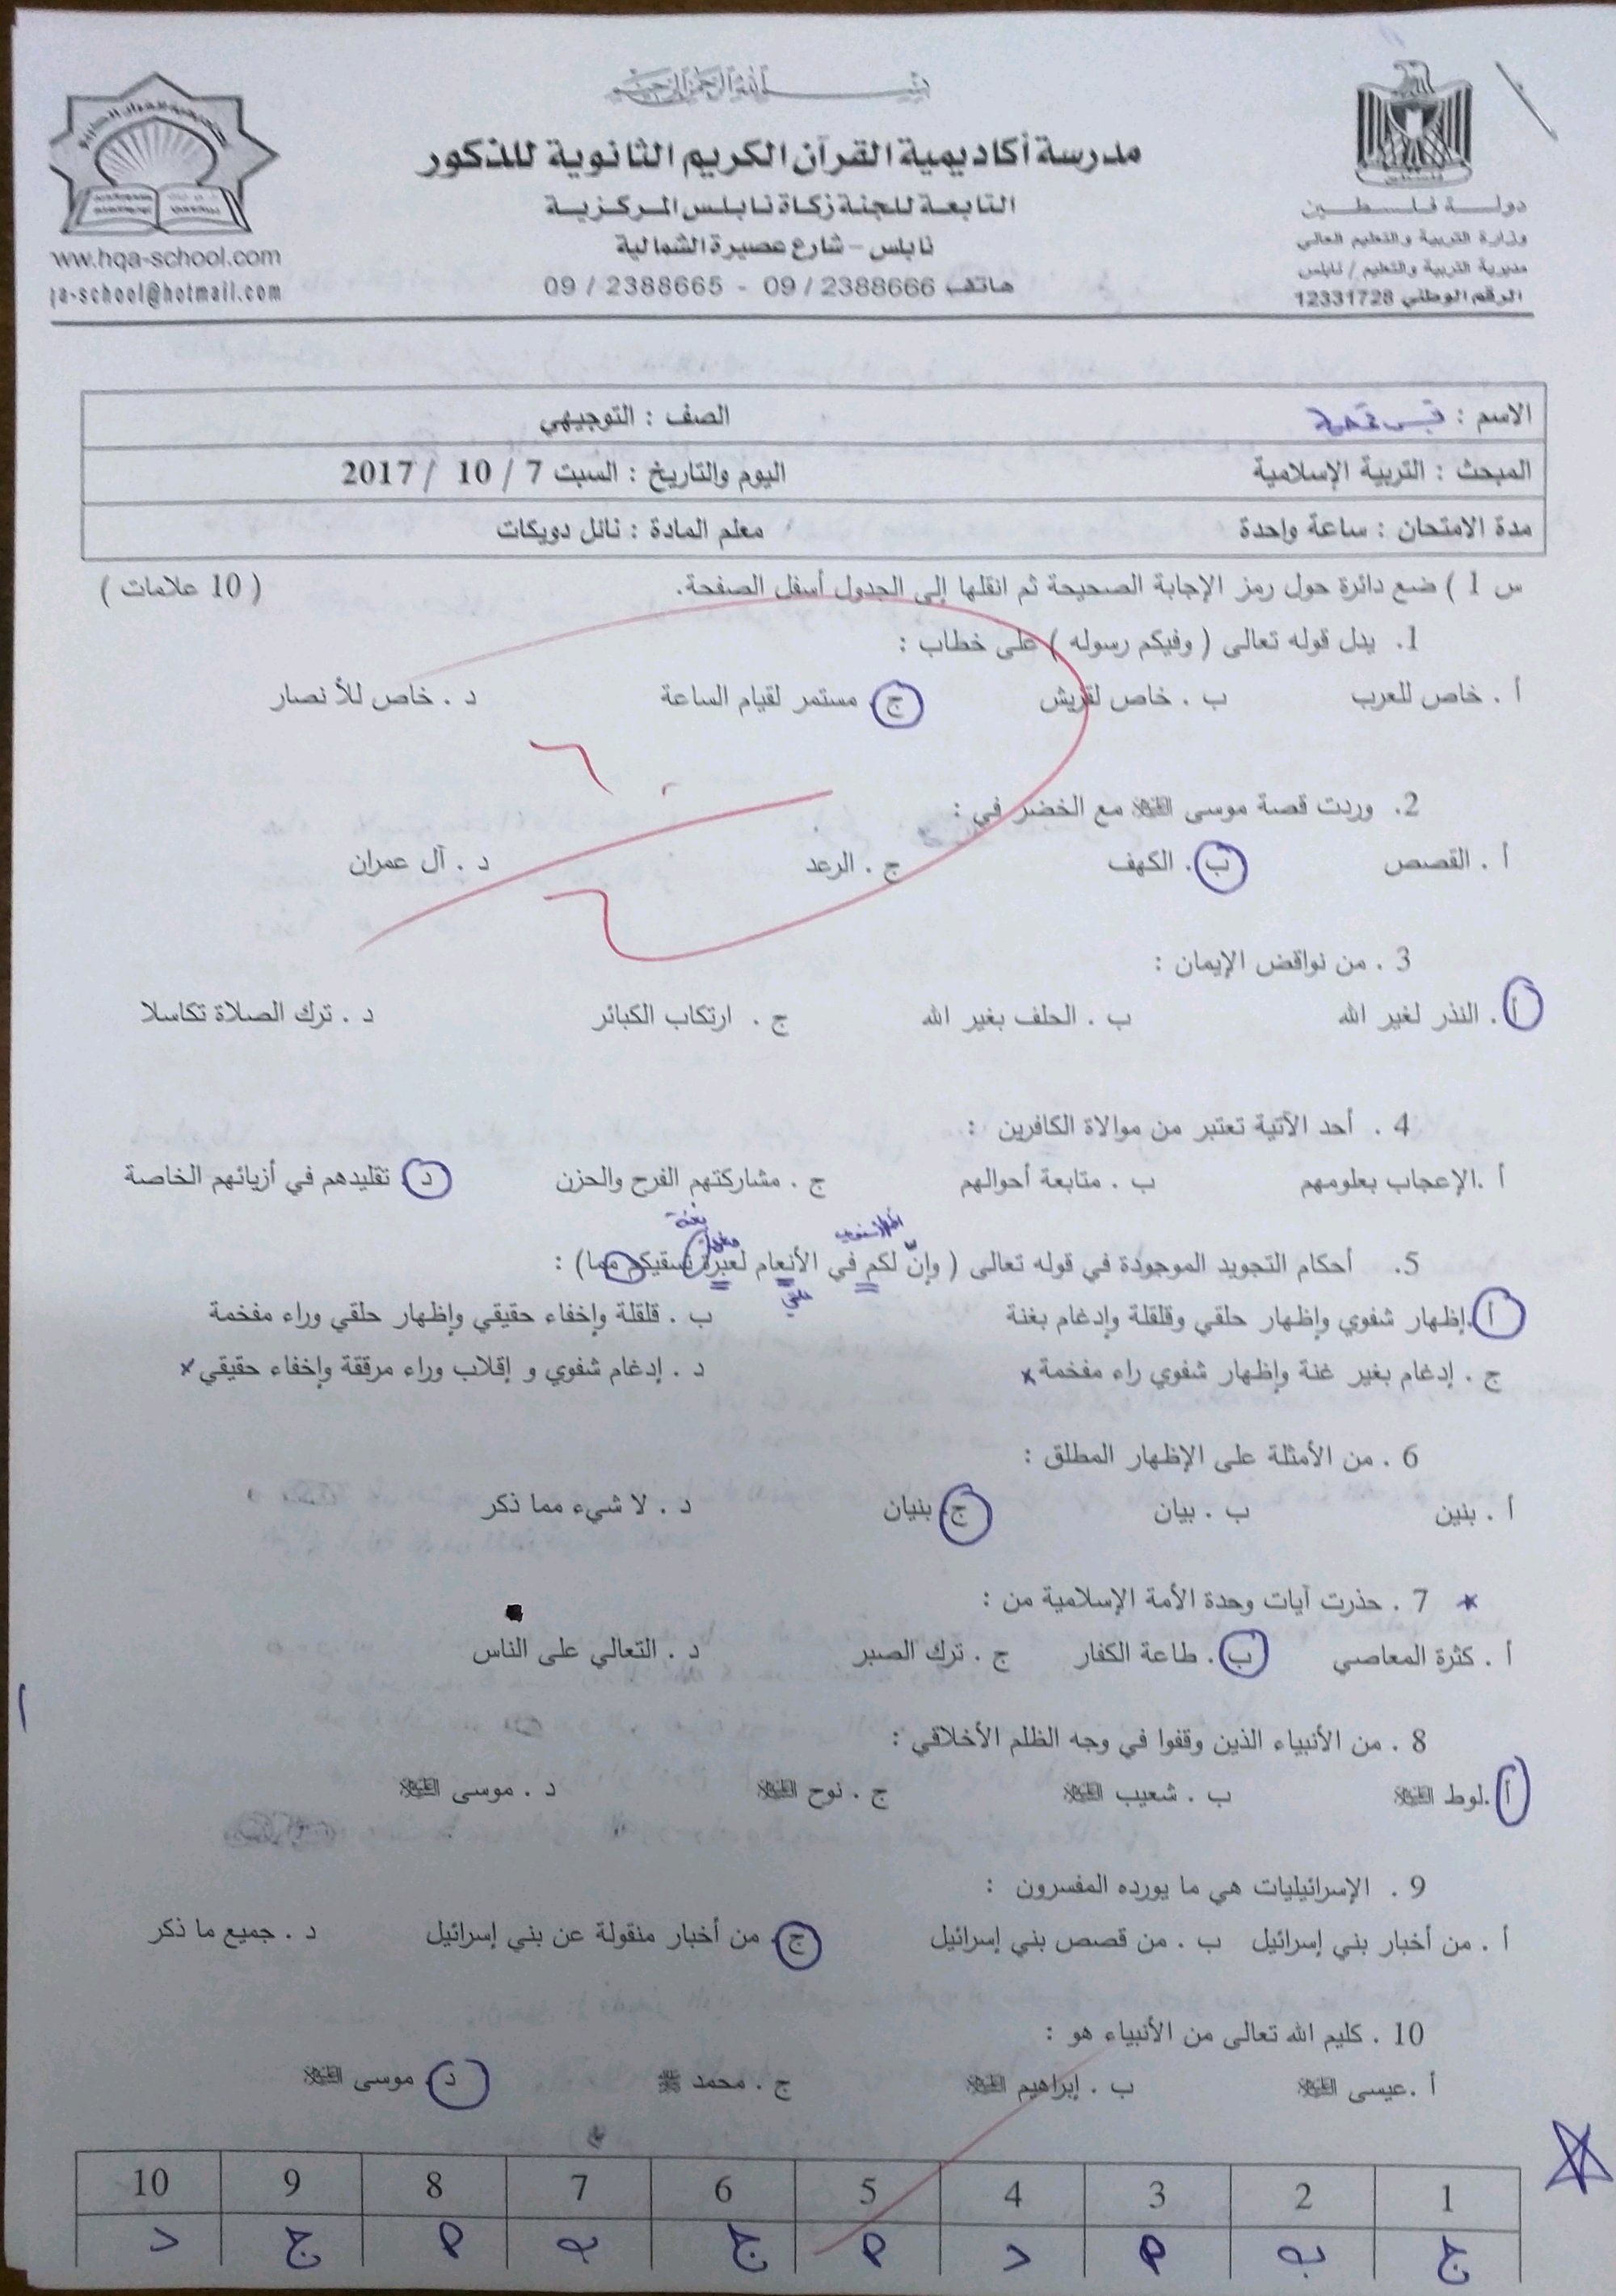 بسم الله الرحمن الرحيم
مدرسة أكاديمية القرآن الكريم الثانوية للذكور
التابعة للجنة زكاة نابلس المركزية
نابلس - شارع عصيرة الشمالية
هاتف 2388666 / 09 - 2388665 / 09
دولة فلسطين
وزارة التربية والتعليم العالي
مديرية التربية والتعليم / نابلس
الرقم الوطني 12331728
فلسطين
ww.hqa-school.com
a-school@hotmail.com
الاسم : الصف : التوجيهي
المبحث : التربية الإسلامية اليوم والتاريخ : السبت 7 / 10 / 2017
مدة الامتحان : ساعة واحدة معلم المادة : نائل دويكات
س 1 ) ضع دائرة حول رمز الإجابة الصحيحة ثم انقلها إلى الجدول أسفل الصفحة. ( 10 علامات )
1. يدل قوله تعالى ( وفيكم رسوله ) على خطاب :
أ . خاص للعرب ب . خاص لقريش ج . مستمر لقيام الساعة د . خاص للأنصار
2. وردت قصة موسى عليه السلام مع الخضر في :
أ . القصص ب . الكهف ج . الرعد د . آل عمران
3 . من نواقض الإيمان :
أ . النذر لغير الله ب . الحلف بغير الله ج . ارتكاب الكبائر د . ترك الصلاة تكاسلا
4 . أحد الآتية تعتبر من موالاة الكافرين :
أ .الإعجاب بعلومهم ب . متابعة أحوالهم ج . مشاركتهم الفرح والحزن د . تقليدهم في أزيائهم الخاصة
بغنة
5. أحكام التجويد الموجودة في قوله تعالى ( وإنّ لكم في الأنعام لعبرة نسقيكم مما) :
حلقي
أ .إظهار شفوي وإظهار حلقي وقلقلة وإدغام بغنة ب . قلقلة وإخفاء حقيقي وإظهار حلقي وراء مفخمة
ج . إدغام بغير غنة وإظهار شفوي راء مفخمة x د . إدغام شفوي و إقلاب وراء مرققة وإخفاء حقيقي x
6 . من الأمثلة على الإظهار المطلق :
أ . بنين ب . بيان ج . بنيان د . لا شيء مما ذكر
* 7 . حذرت آيات وحدة الأمة الإسلامية من :
أ . كثرة المعاصي ب . طاعة الكفار ج . ترك الصبر د . التعالي على الناس
8 . من الأنبياء الذين وقفوا في وجه الظلم الأخلاقي :
أ .لوط عليه السلام ب . شعيب عليه السلام ج . نوح عليه السلام د . موسى عليه السلام
9 . الإسرائيليات هي ما يورده المفسرون :
أ . من أخبار بني إسرائيل ب . من قصص بني إسرائيل ج . من أخبار منقولة عن بني إسرائيل د . جميع ما ذكر
10 . كليم الله تعالى من الأنبياء هو :
أ .عيسى عليه السلام ب . إبراهيم عليه السلام ج . محمد ﷺ د . موسى عليه السلام
1 2 3 4 5 6 7 8 9 10
ج ب أ د أ ج ب أ ج د